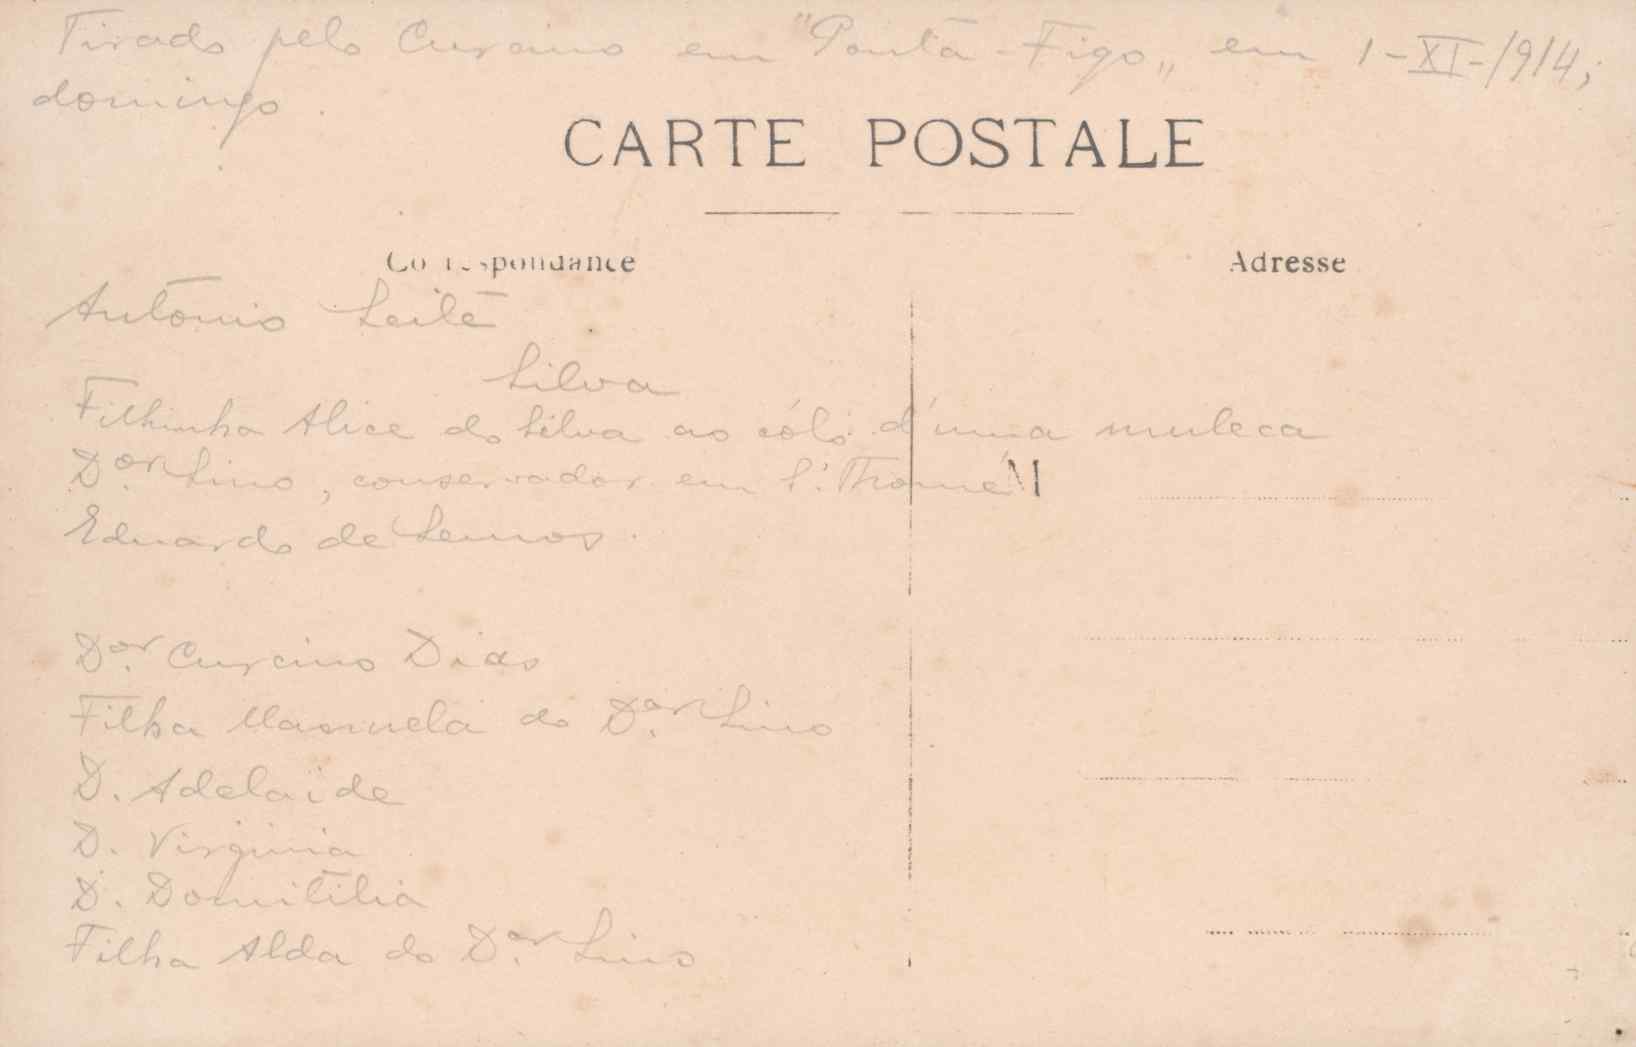 Tirado pelo Curcino em "Ponta-Figo„ em 1-XI-1914;
domingo.
CARTE POSTALE
Correspondance
Adresse
António Leite
Silva
Filhinha Alice do Silva ao cólo d'uma muleca
Dor. Lino, conservador em S. Thomé
M
Eduardo de Lemos.
Dor. Curcino Dias
Filha Manuela do Dor. Lino
D. Adelaide
D. Virginia
D. Domitilia
Filha Alda do Dor. Lino